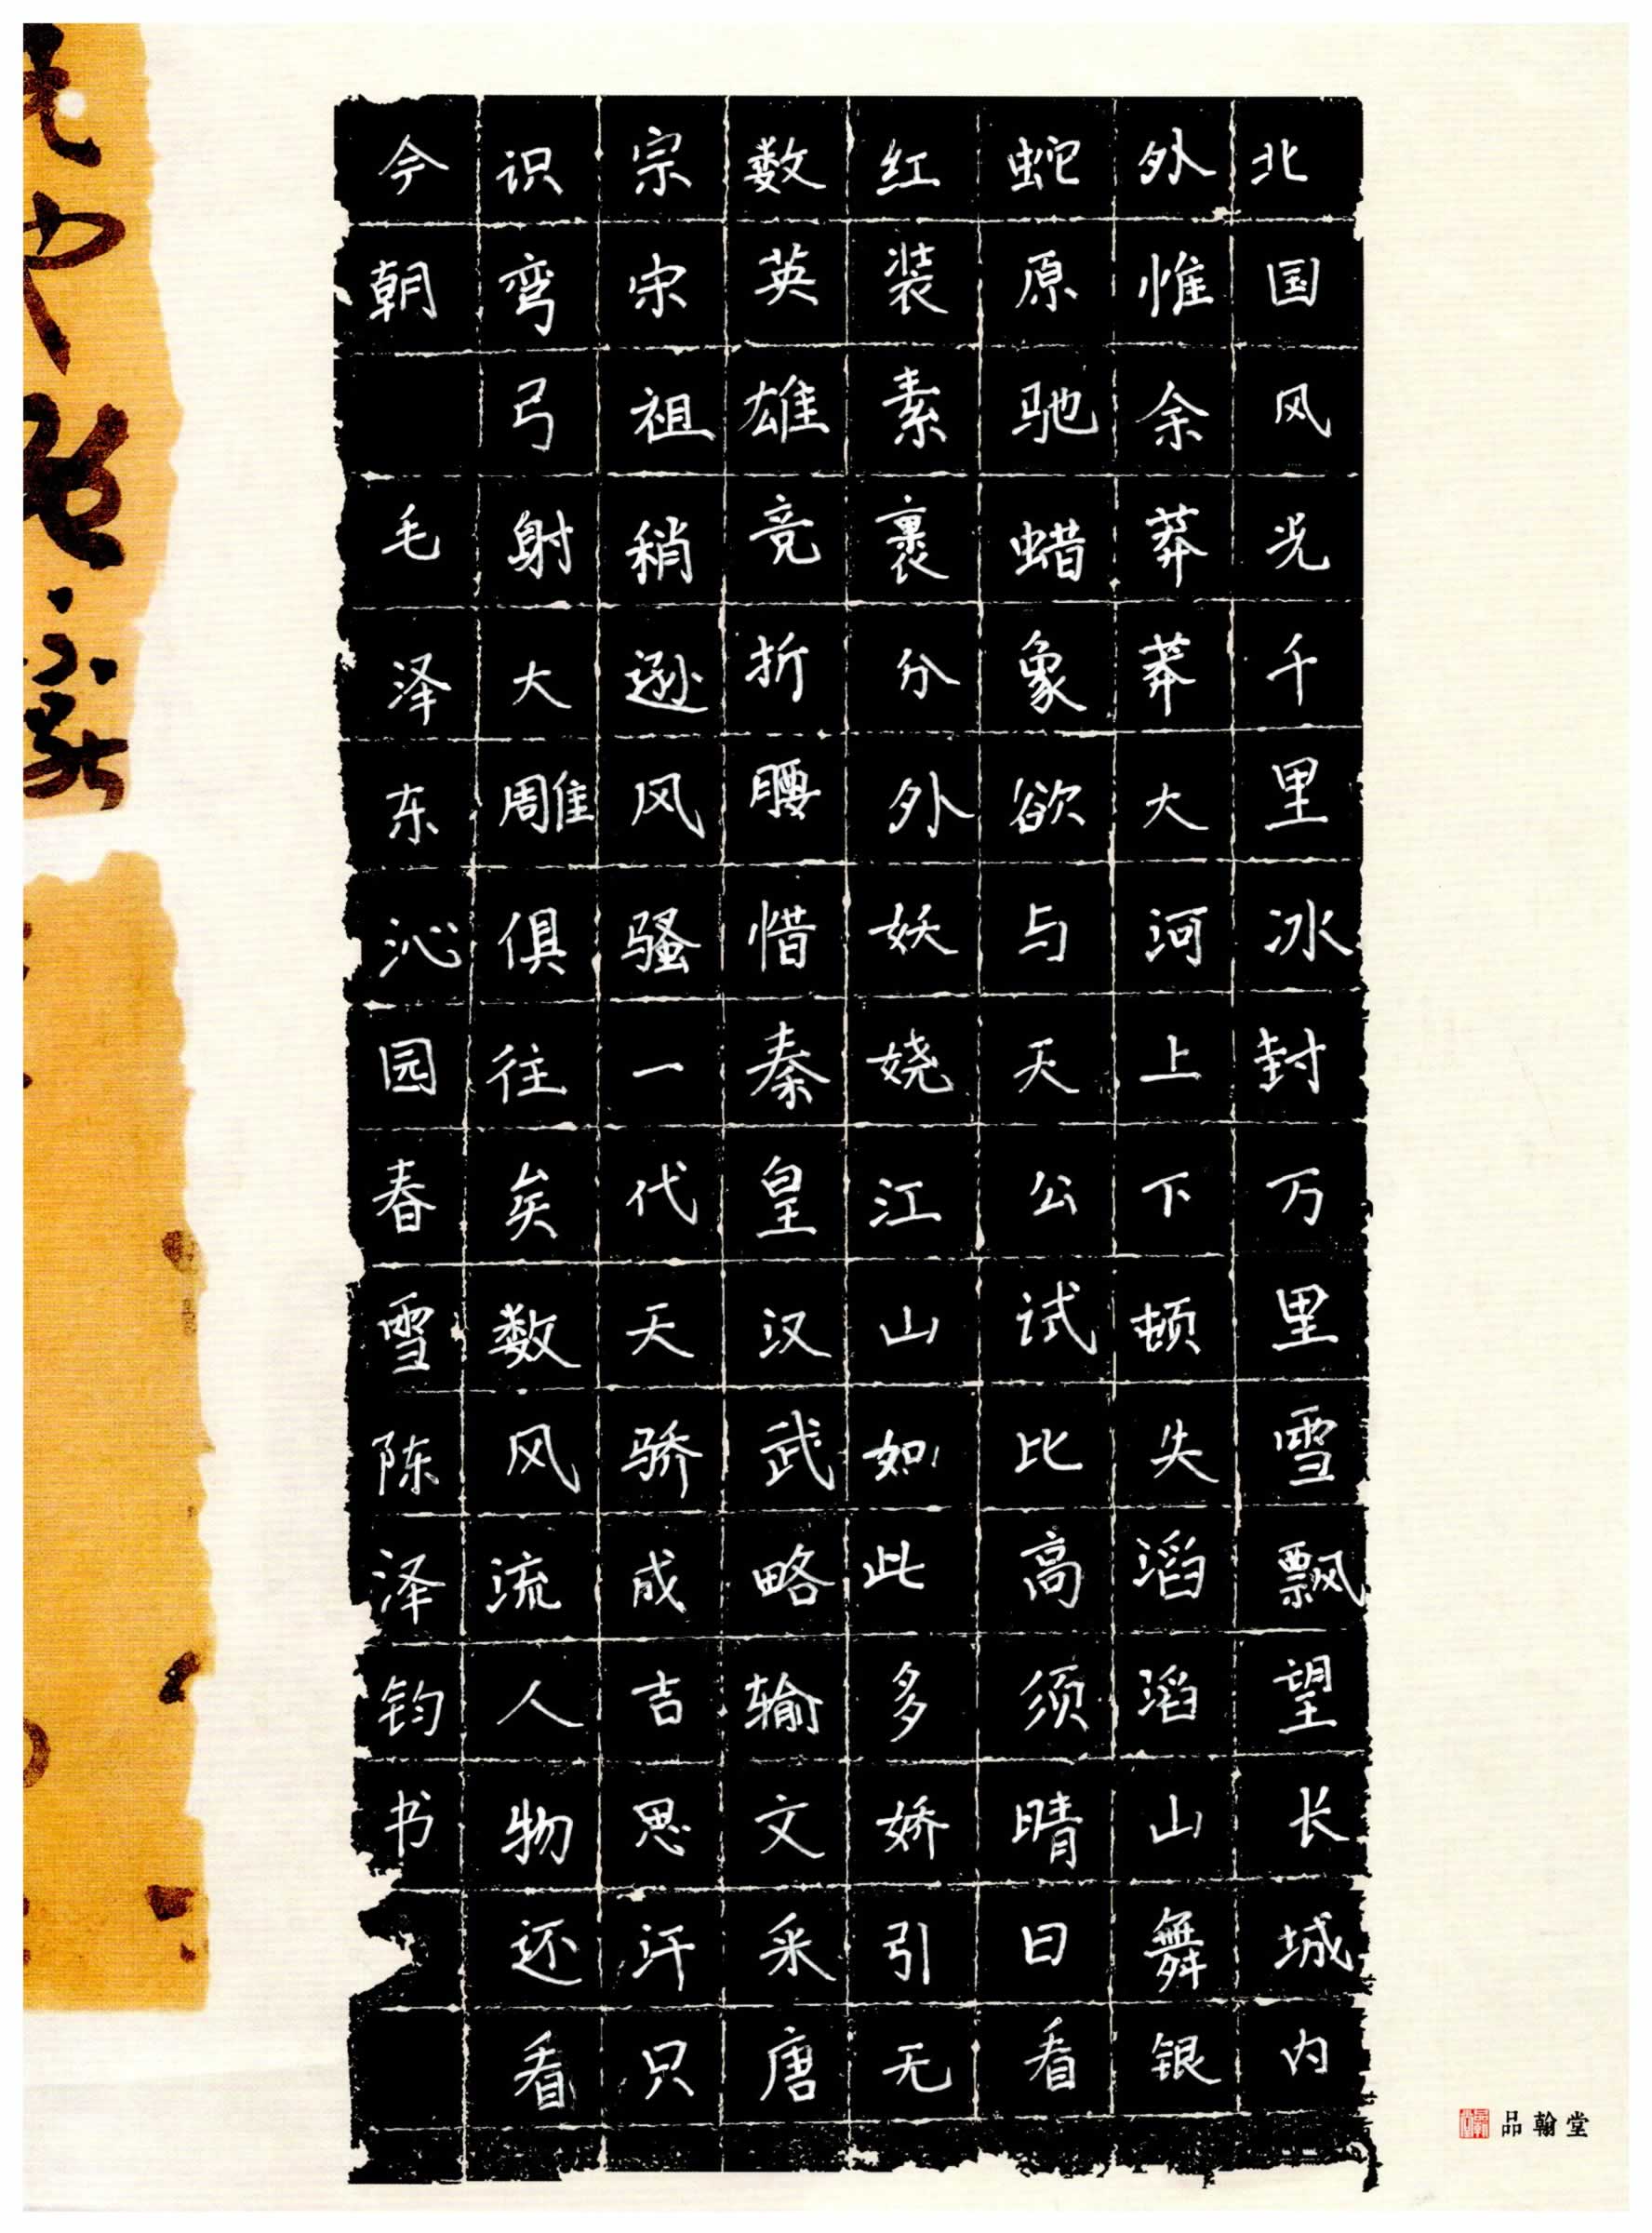 北国风光千里冰封万里雪飘望长城内
外惟余莽莽大河上下顿失滔滔山舞银
蛇原驰蜡象欲与天公试比高须晴日看
红装素裹分外妖娆江山如此多娇引无
数英雄竞折腰惜秦皇汉武略输文采唐
宗宋祖稍逊风骚一代天骄成吉思汗只
识弯弓射大雕俱往矣数风流人物还看
今朝 毛泽东沁园春雪陈泽钧书
品翰堂